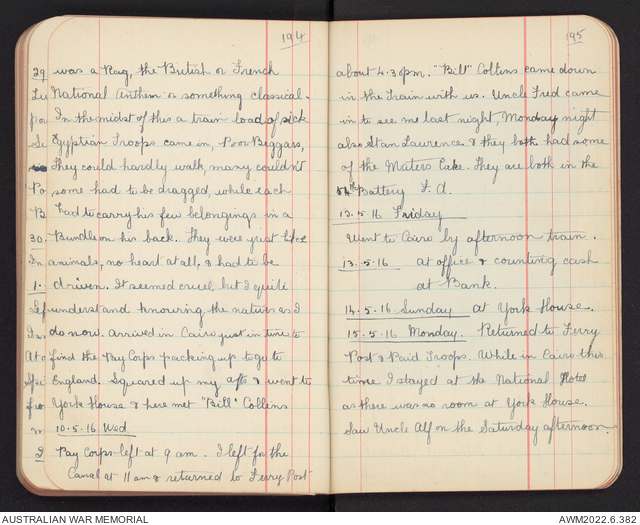 194
was a Rag, the British or French
National Anthem or something classical.
In the midst of this a train load of sick
Egyptian Troops came in, Poor Beggars,
they could hardly walk, many couldn't
some had to be dragged, while each
had to carry his few belongings in a
Bundle on his back. They were just like
animals, no heart at all, & had to be
driven. It seemed cruel but I quite
understand knowing the natives as I
do now. Arrived in Cairo just in time to
find the Pay Corps packing up to go to
England. Squared up my a/c & went to
York House & here met "Bill" Collins
10.5.16 Wed
Pay Corps left at 9 am. I left for the
Canal at 11 am & returned to Ferry Post
195
about 4.30pm. "Bill" Collins came down
in the Train with us. Uncle Fred came
in to see me last night Monday night
also Stan Laurence & they both had some
of the Maters Cake. They are both in the
54th Battery F.A.
12.5.16 Friday
Went to Cairo by afternoon train.
13.5.16 at office & counting cash
at Bank.
14.5.16 Sunday at York House.
15.5.16 Monday. Returned to Ferry
Post & Paid Troops. While in Cairo this
time I stayed at the National Hotel
as there was no room at York House.
Saw Uncle Alf on the Saturday afternoon.
AUSTRALIAN WAR MEMORIAL
AWM2022.6.382